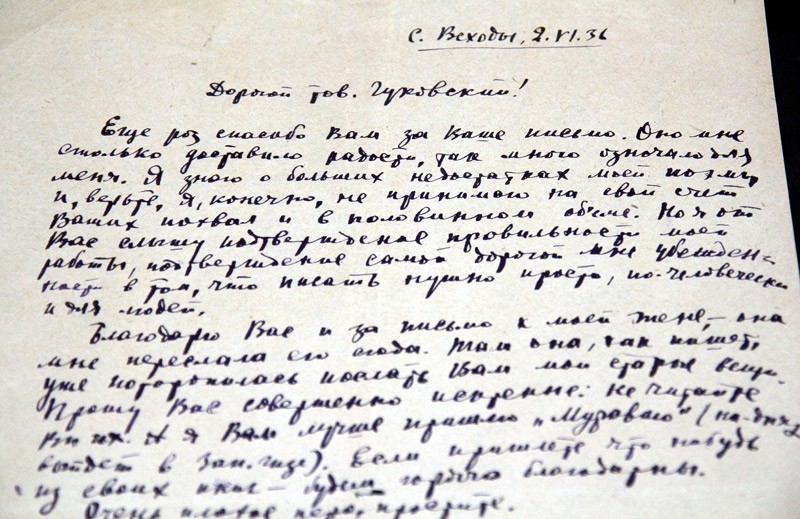 С. Всходы, 2.VI.36
Дорогой тов. Чуковский!
Еще раз спасибо Вам за Ваше письмо. Оно мне
столько доставило радости, так много означало для
меня. Я знаю о больших недостатках моей поэмы
и, верьте, я, конечно, не принимаю на свой счет
Ваших похвал и в половинном объеме. Но я от
Вас слышу подтверждение правильности моей
работы, подтверждение самой дорогой мне убежден-
ности в том, что писать нужно просто, по-человечески
и для людей.
Благодарю Вас и за письмо к моей жене, – она
мне переслала его сюда. Там она, как пишет,
уже поторопилась послать Вам мои старые вещи.
Прошу Вас совершенно искренне: не читайте
Вы их. А я Вам лучше пришлю „Муравию" (на-днях
выйдет в Зап.гизе). Если пришлете что нибудь
из своих книг – будем горячо благодарны.
Очень плохое перо, простите.